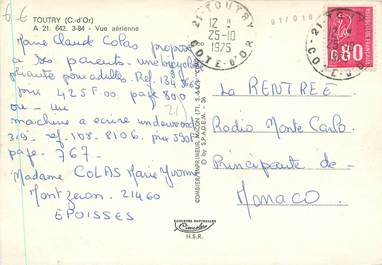 TOUTRY (C.-d'Or)
A 21. 642. 3-84 - Vue aérienne
Marie Claude Colas propose
à ses parents - une bicyclette
pliante pour adulte. Ref. 134
prix 425F00 page 800
ou - un
machine a ecrire underwood
319 - ref. 108. 8106. prix 590F
page. 767
Madame COLAS Marie Yvonne
Montzeron. 21460
EPOISSES
21 - TOUTRY
12 H
25-10
1975
COTE-D'OR
0,80
La RENTREE
Radio Monte Carlo
Principaute de
Monaco
COMBIER IMPRIMEUR MACON
© by S.P.A.D.E.M.
Combier
H.S.R.